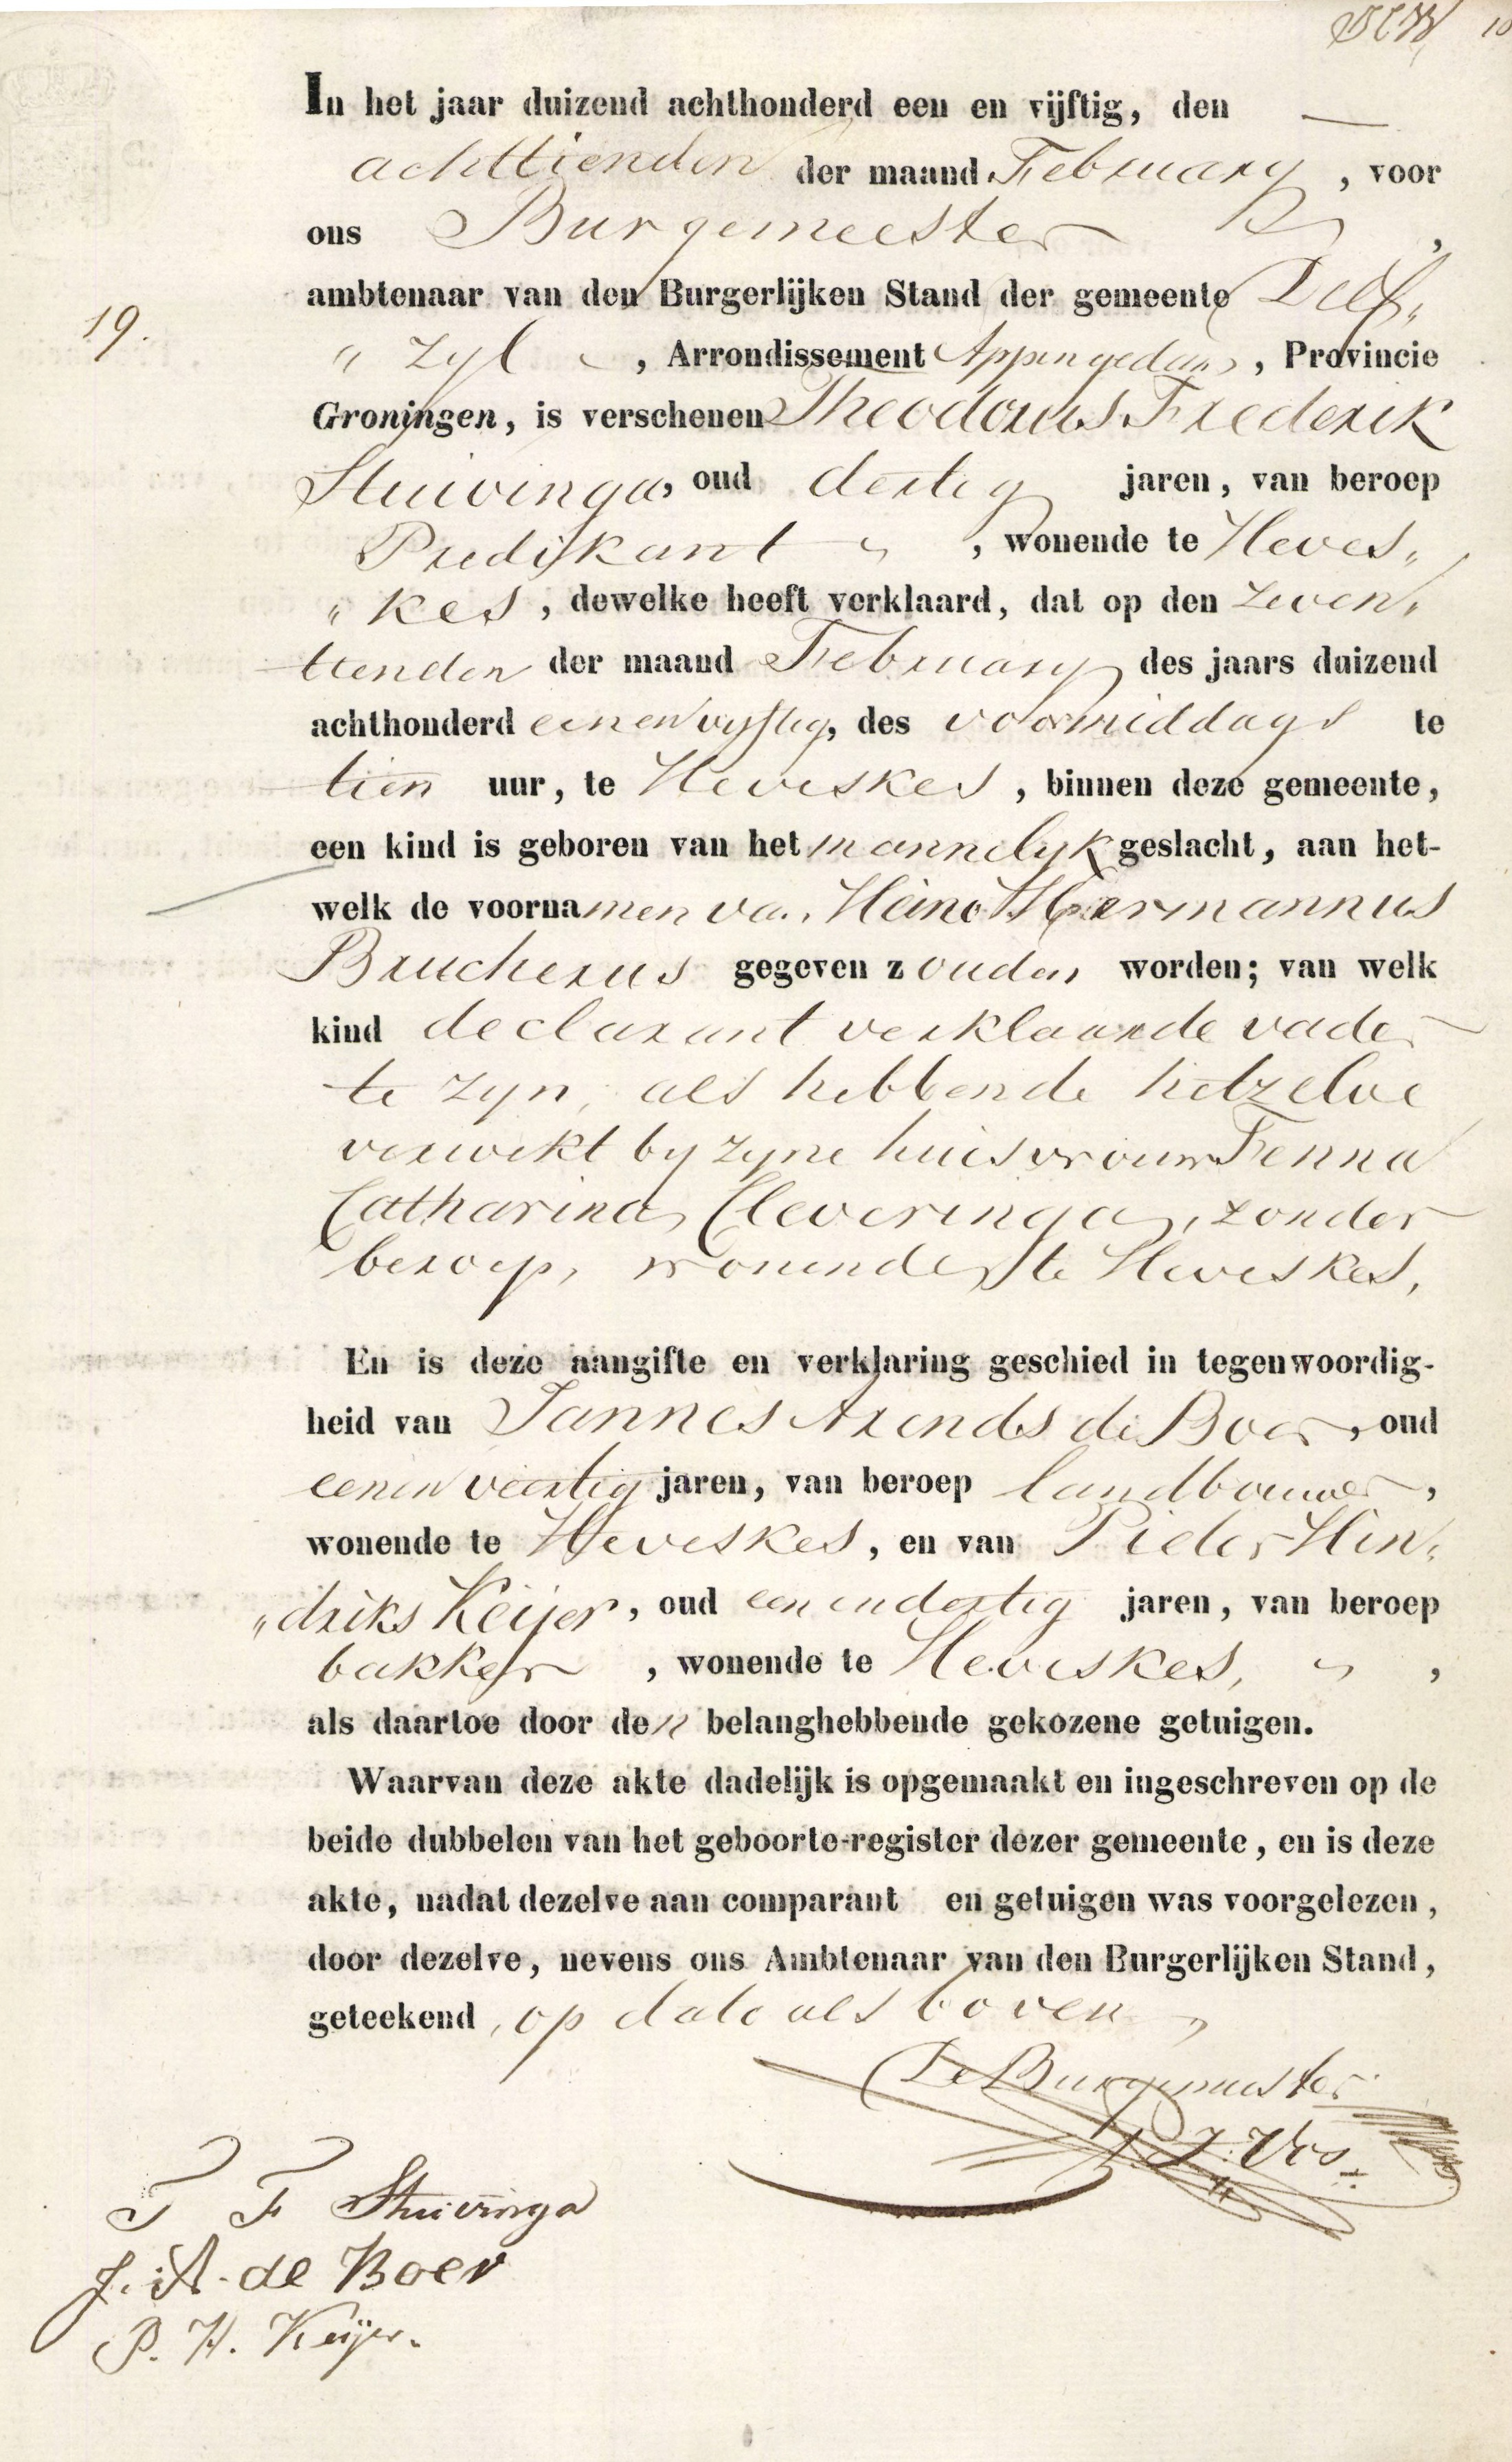 In het jaar duizend achthonderd een en vijftig, den —
achttienden der maand February, voor
ons Burgemeester ,
ambtenaar van den Burgerlijken Stand der gemeente Delf„
19.
„zyl , Arrondissement Appingedam, Provincie
Groningen, is verschenen Theodorus Frederik
Stuivinga, oud dertig jaren, van beroep
Predikant , wonende te Heves„
„kes, dewelke heeft verklaard, dat op den zeven„
tienden der maand February des jaars duizend
achthonderd een en vyftig, des voormiddags te
tien uur, te Heveskes, binnen deze gemeente,
een kind is geboren van het mannelyk geslacht, aan het-
welk de voornamen van Heino Hermannus
Brucherus gegeven zouden worden; van welk
kind declarant verklaarde vader
te zyn, als hebbende hetzelve
verwekt by zyne huisvrouw Fenna
Catharina Cleveringa, zonder
beroep, wonende te Heveskes,
En is deze aangifte en verklaring geschied in tegenwoordig-
heid van Jannes Arends de Boer, oud
eenen veertig jaren, van beroep landbouwer,
wonende te Heveskes, en van Pieter Hin„
„driks Keijer, oud een en dertig jaren, van beroep
bakker , wonende te Heveskes, ,
als daartoe door den belanghebbende gekozene getuigen.
Waarvan deze akte dadelijk is opgemaakt en ingeschreven op de
beide dubbelen van het geboorte-register dezer gemeente, en is deze
akte, nadat dezelve aan comparant en getuigen was voorgelezen,
door dezelve, nevens ons Ambtenaar van den Burgerlijken Stand,
geteekend, op dato als boven
De Burgemeester
J. Vos
T F Stuivinga
J. A. de Boer
P. H. Keijer.